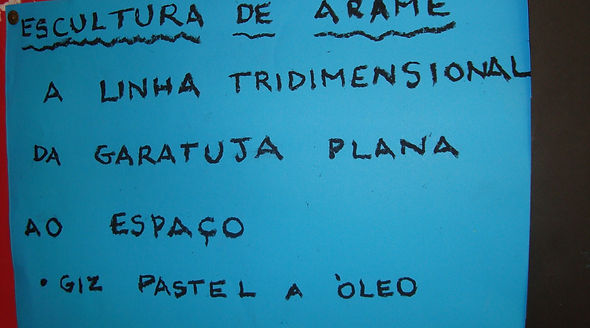 ESCULTURA DE ARAME
A LINHA TRIDIMENSIONAL
DA GARATUJA PLANA
AO ESPAÇO
• GIZ PASTEL A ÒLEO